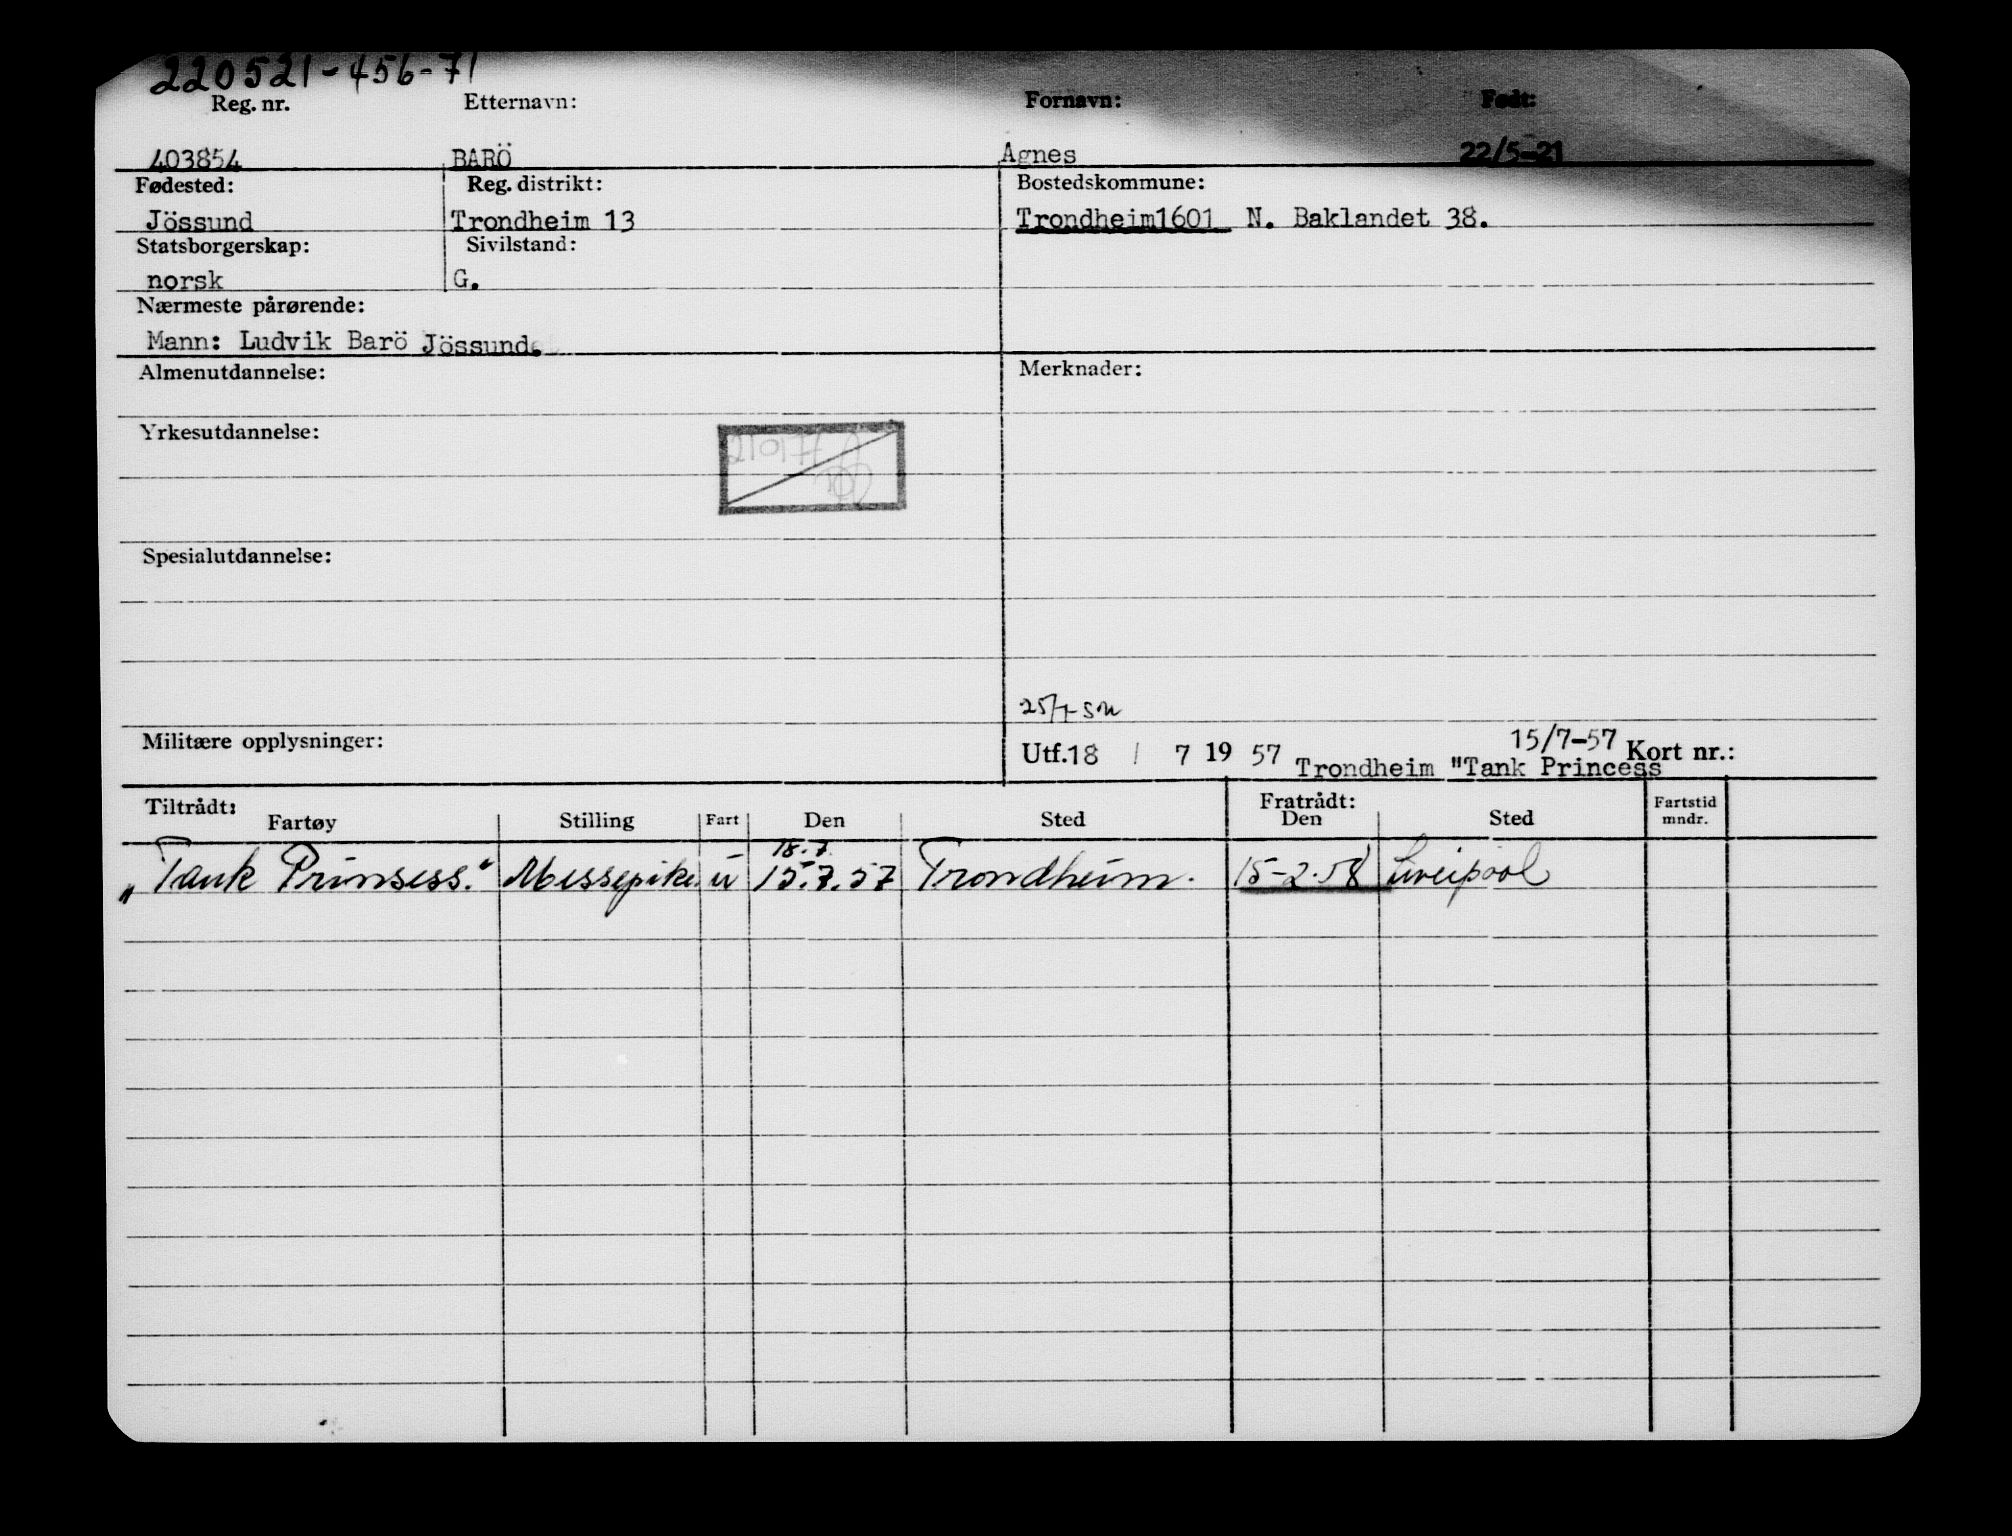 220521-456-71
Reg. nr. Etternavn: Fornavn: Født:
403854 BARÖ Agnes 22/5-21
Fødested: Reg. distrikt: Bostedskommune:
Jössund Trondheim 13 Trondheim1601 N. Baklandet 38.
Statsborgerskap: Sivilstand:
norsk G.
Nærmeste pårørende:
Mann: Ludvik Barö Jössund.
Almenutdannelse: Merknader:
Yrkesutdannelse:
210177
Spesialutdannelse:
25/7
Militære opplysninger: Utf.18 / 7 19 57 Trondheim "Tank Princess 15/7-57 Kort nr.:
Tiltrådt: Fratrådt:
Fartøy Stilling Fart Den Sted Den Sted Fartstid mndr.
18.7.
„Tank Prinsess." Messepike. u 15.7.57 Trondheim. 15-2-58 Liverpool